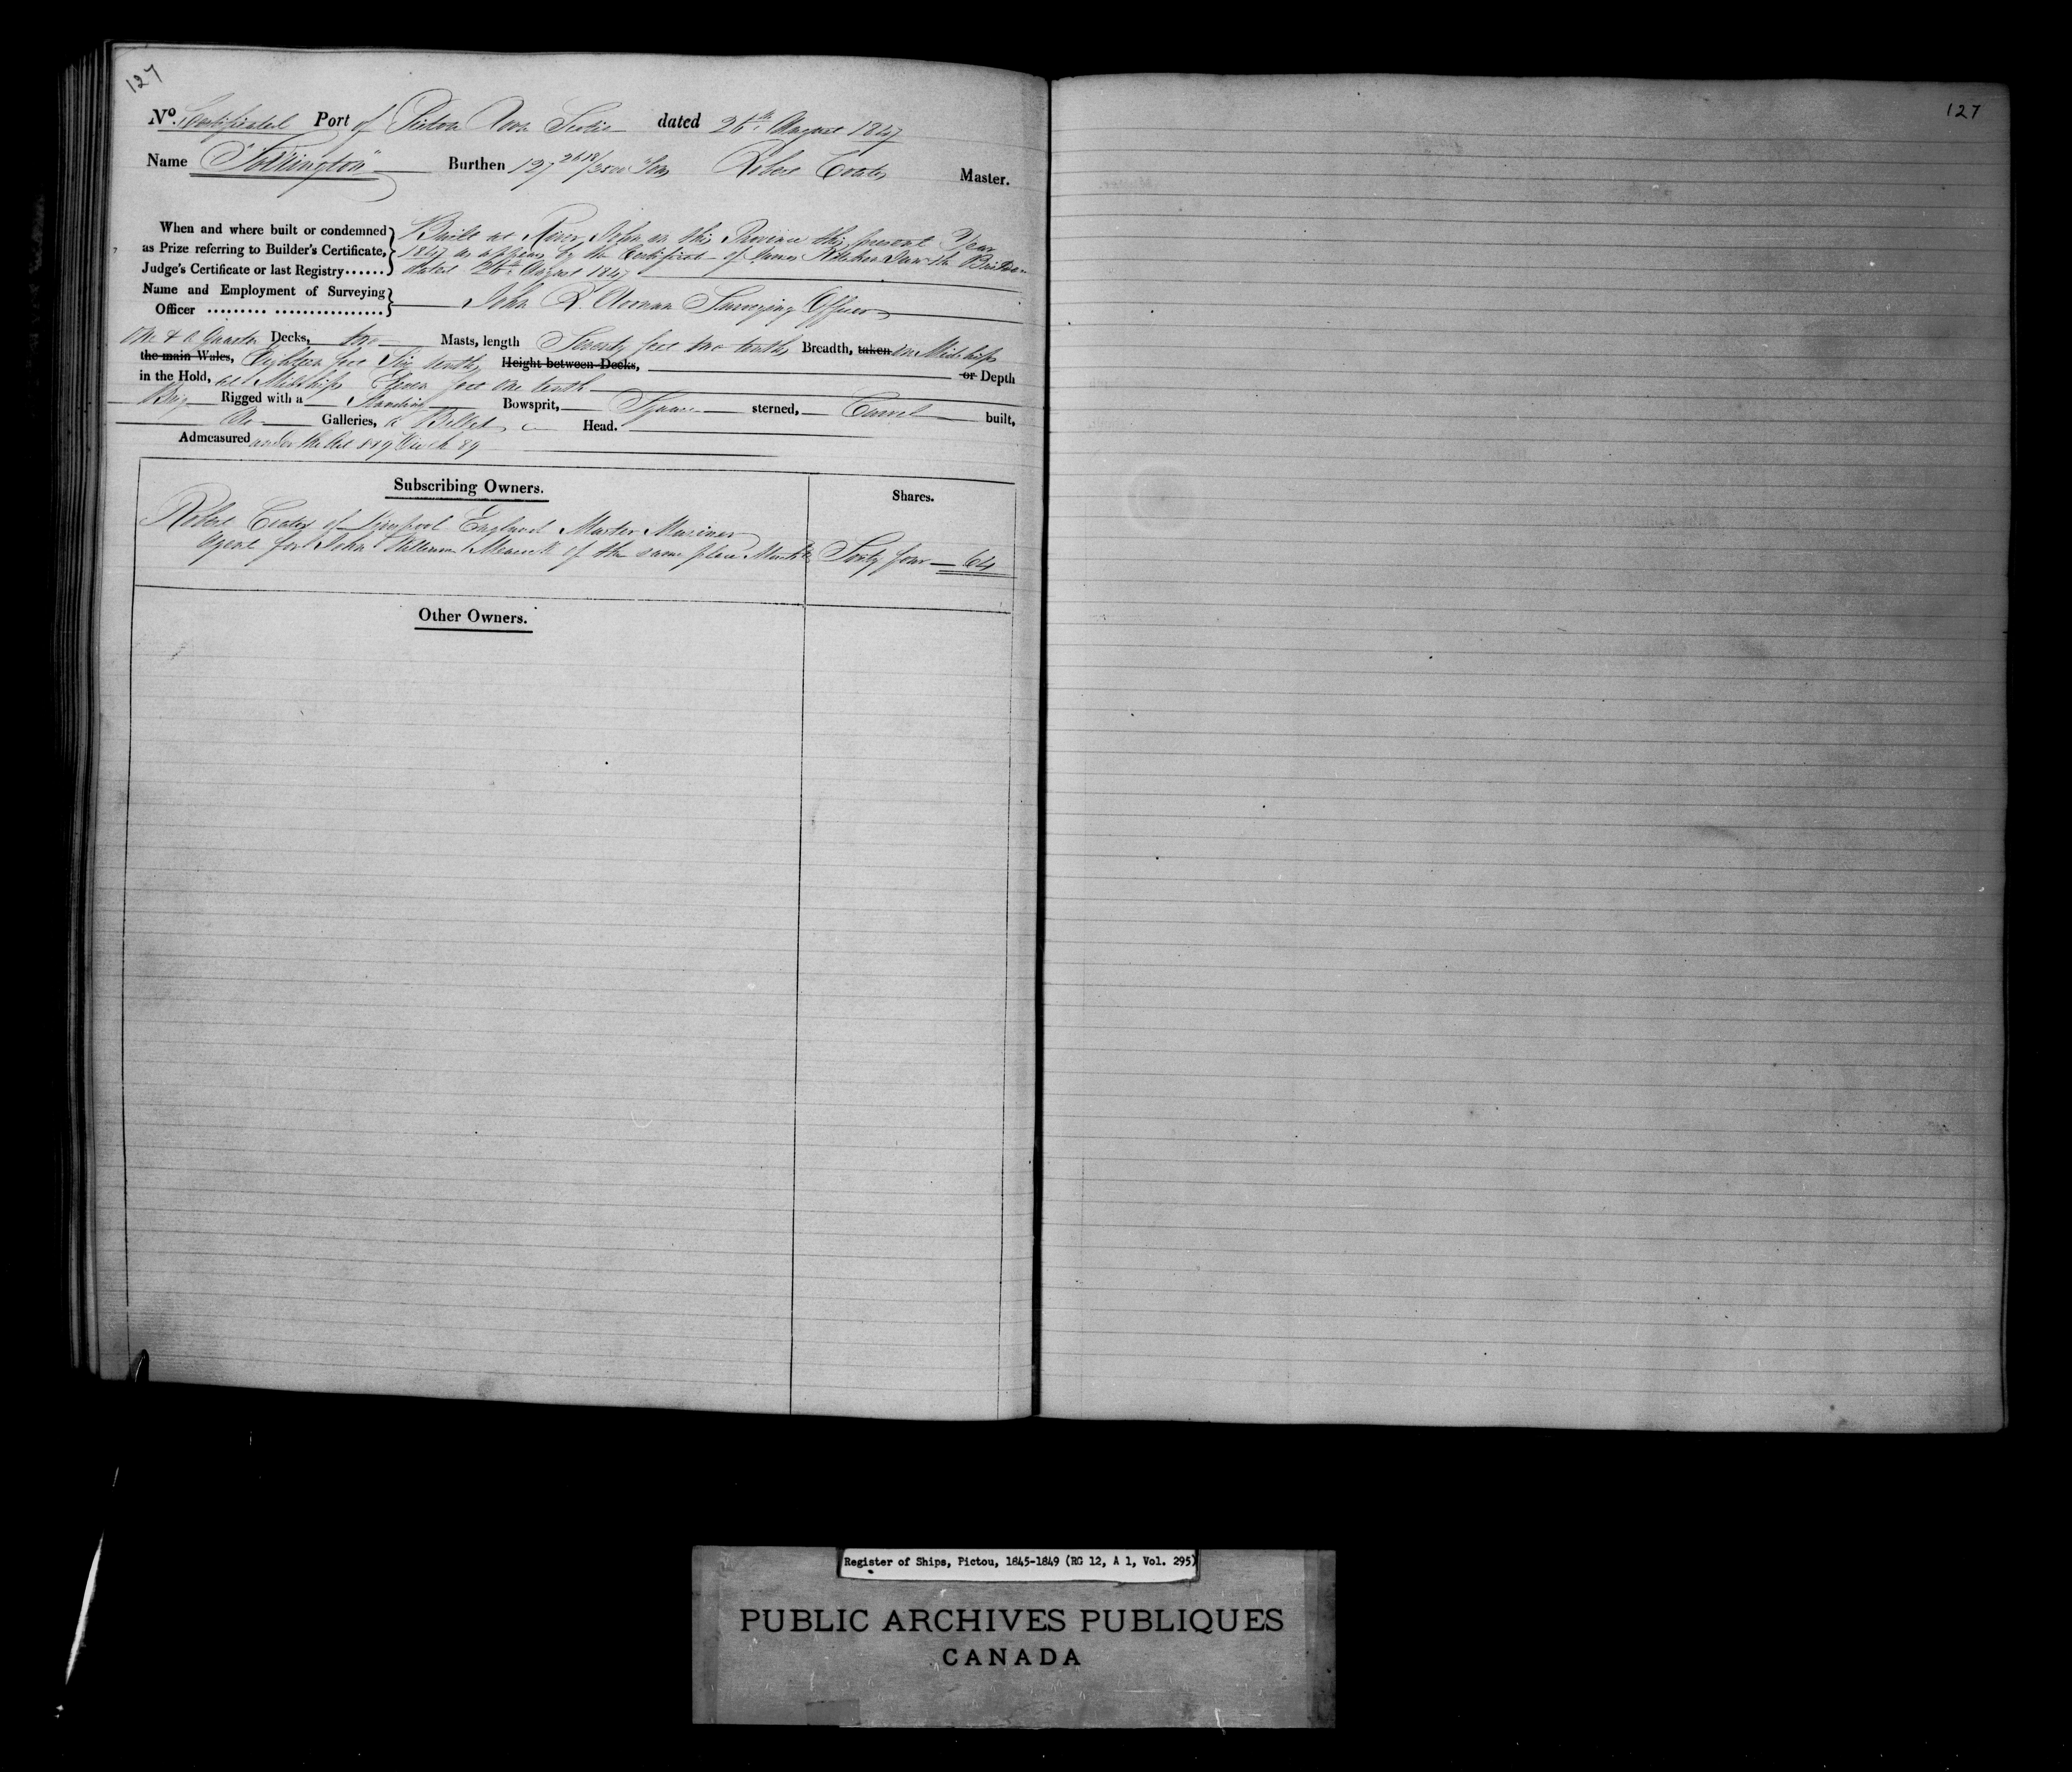 127
127
No. Certificated Port of Pictou Nova Scotia dated 26th August 1847
Name Burthen 127 2618/3500 Tons Robert Coates Master.
When and where built or condemned as Prize referring to Builder's Certificate, Judge's Certificate or last Registry......
Built at River John in this Province this present Year
1847 as appears by the Certificate of James Kitchin Junr the Builder
dated 26th August 1847
Name and Employment of Surveying Officer ......... ................ John R. Noonan Surveying Officer
One & a Quarter Decks, two Masts, length Seventy feet two tenths Breadth, taken in Midships
the main Wales, Eighteen feet Six tenths Height between Decks, or Depth
in the Hold, at Midships Eleven feet One tenth
Brig Rigged with a Standing Bowsprit, Square sterned, Carvel built,
No Galleries, a Billet Head.
Admeasured under the Act 8 & 9 Vic Ch 89
Subscribing Owners. Shares.
Robert Coates of Liverpool England Master Mariner
Agent for John William of the same place Sixty four 64
Other Owners.
Register of Ships, Pictou, 1845-1849 (RG 12, A 1, Vol. 295)
PUBLIC ARCHIVES PUBLIQUES
CANADA